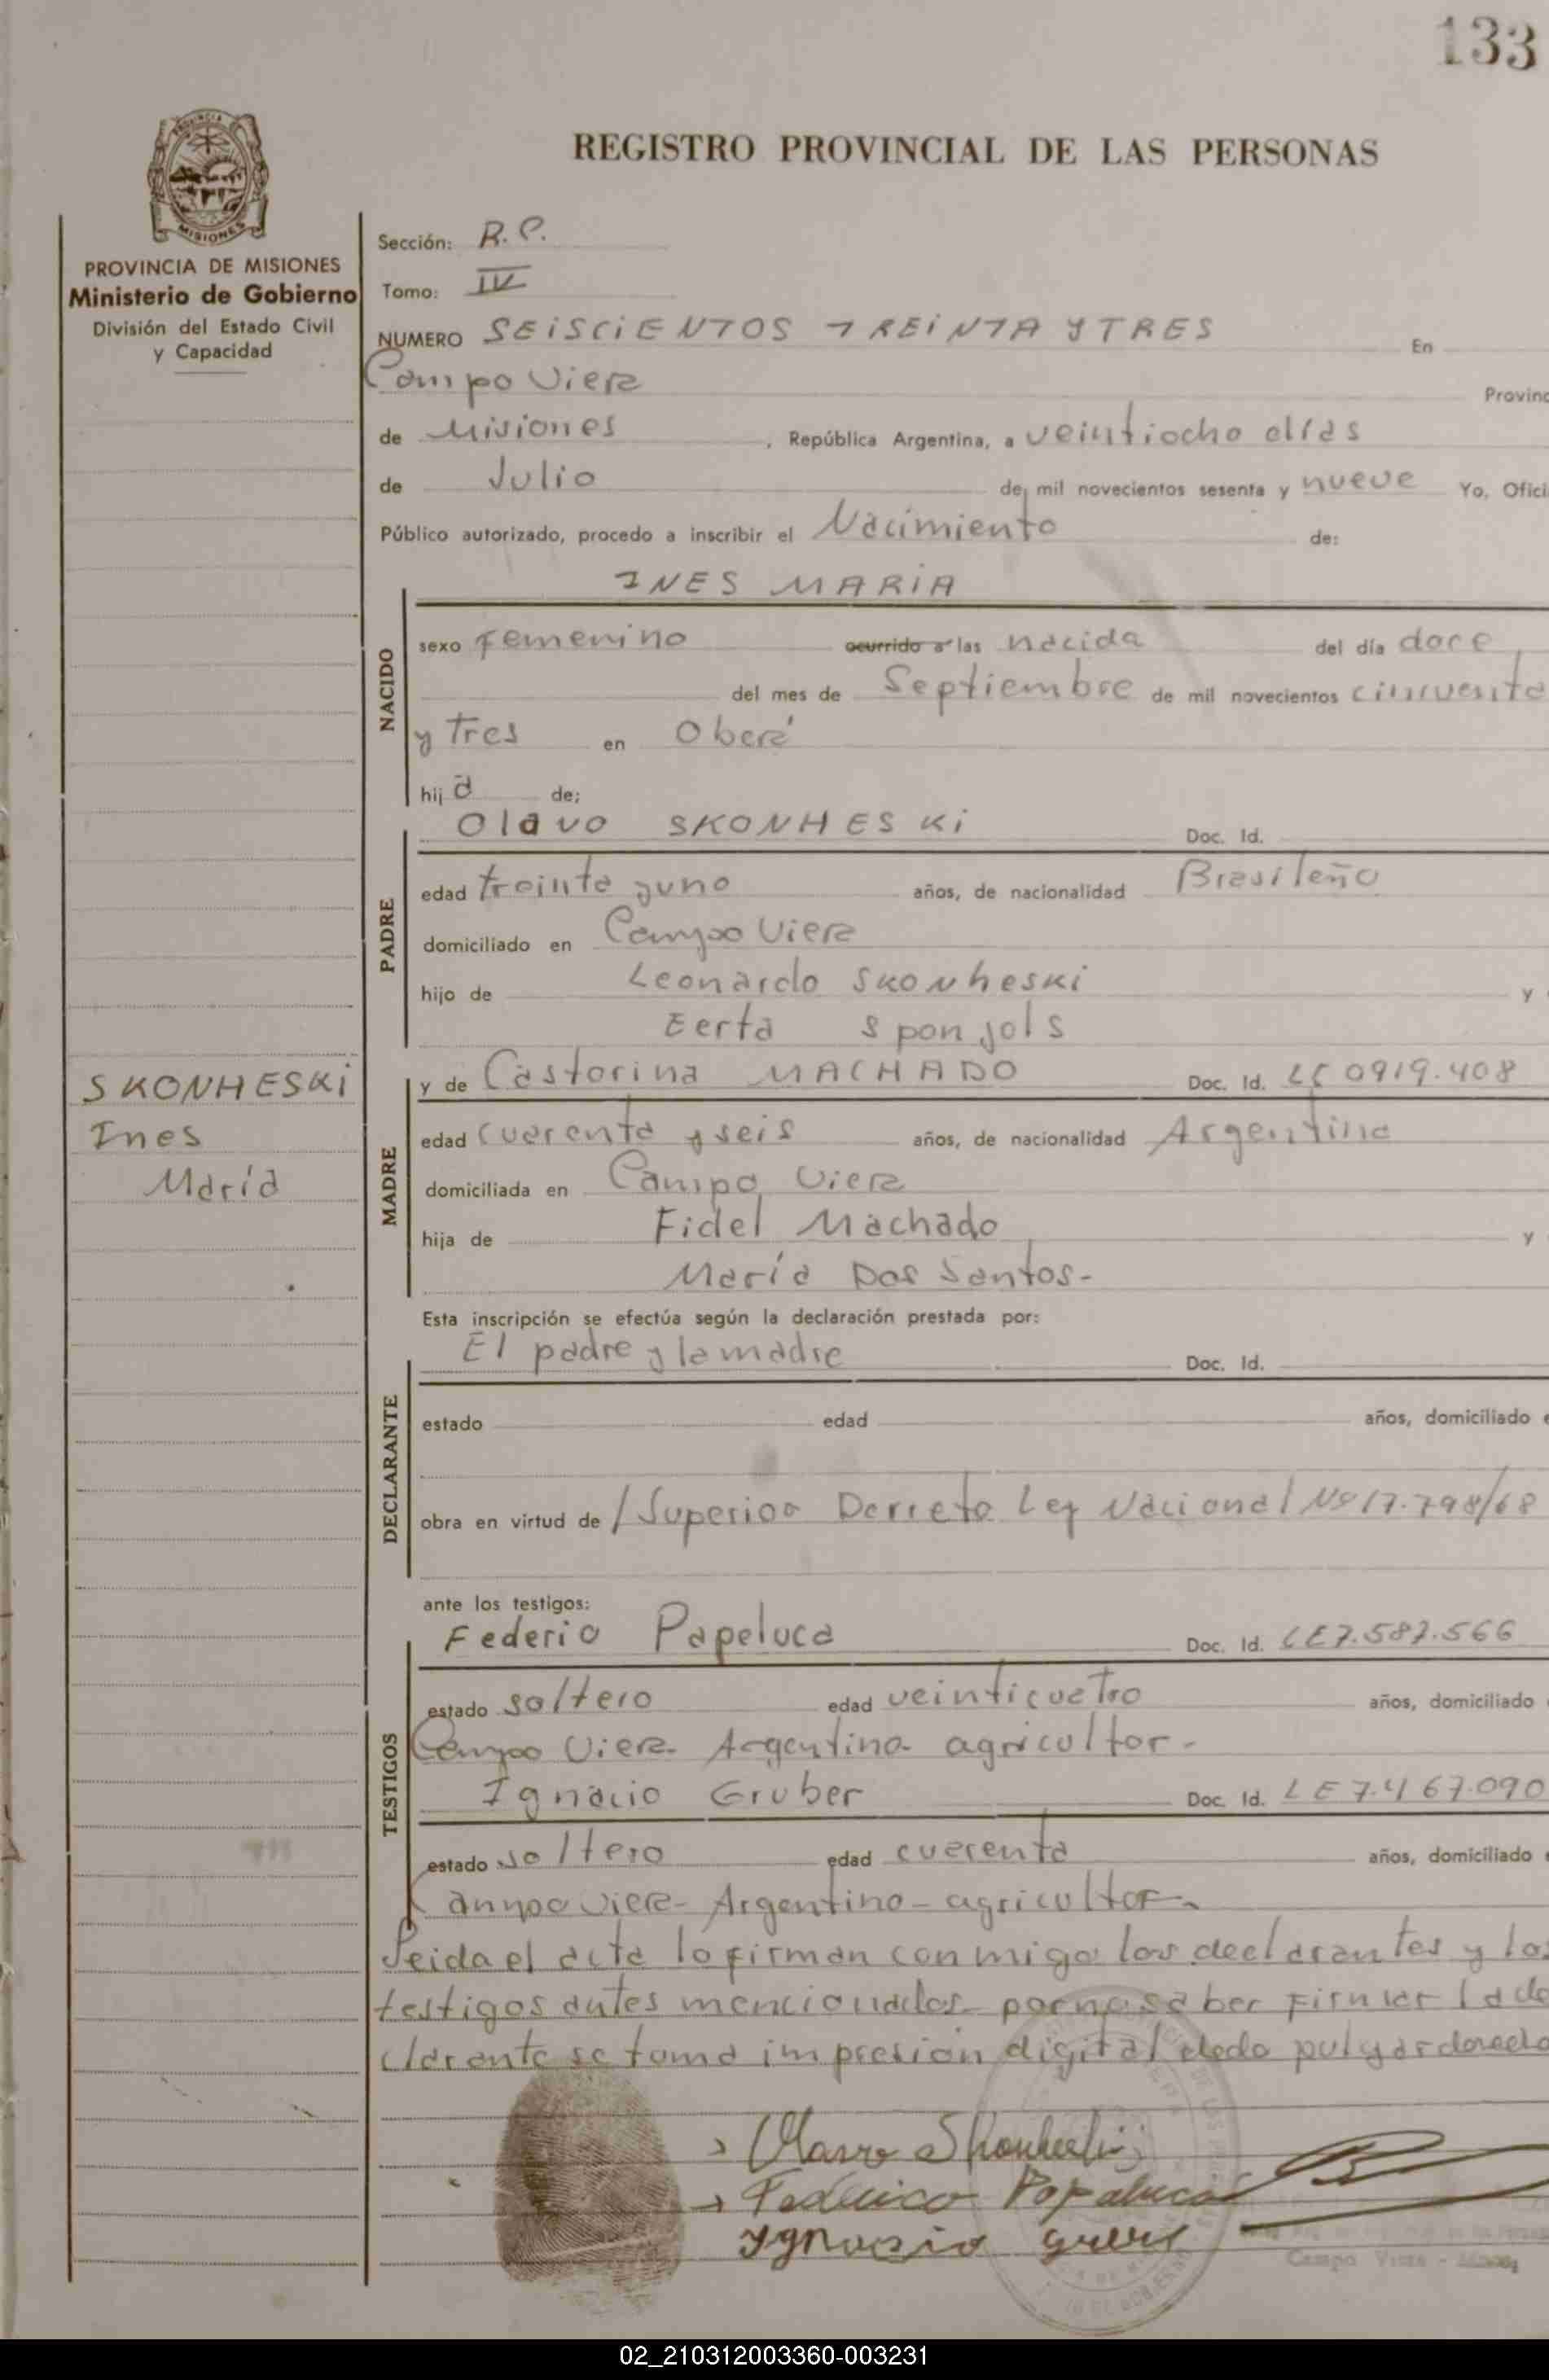 133
REGISTRO PROVINCIAL DE LAS PERSONAS
PROVINCIA
MISIONES
PROVINCIA DE MISIONES
Ministerio de Gobierno
División del Estado Civil
y Capacidad
Sección: R.P.
Tomo: IV
NUMERO SEISCIENTOS TREINTA Y TRES En
Campo Viera Provinc
de Misiones , República Argentina, a veintiocho días
de Julio de mil novecientos sesenta y nueve Yo, Ofici
Público autorizado, procedo a inscribir el Nacimiento de:
NACIDO
INES MARIA
sexo Femenino ocurrido a las nacida del día doce
del mes de Septiembre de mil novecientos cincuenta
y Tres en Oberá
hij a de;
PADRE
Olavo SKONHESKI Doc. Id.
edad treinta y uno años, de nacionalidad Brasileño
domiciliado en Campo Viera
hijo de Leonardo Skonheski y
Eerta Sponjols
SKONHESKI
Ines
María
MADRE
y de Castorina MACHADO Doc. Id. LC 0919.408
edad cuarenta y seis años, de nacionalidad Argentina
domiciliada en Campo Viera
hija de Fidel Machado y
María Dos Santos-
Esta inscripción se efectúa según la declaración prestada por:
DECLARANTE
El padre y la madre Doc. Id.
estado edad años, domiciliado e
obra en virtud de /Superior Decreto Ley Nacional Nº 17.798/68
ante los testigos:
TESTIGOS
Federio Papeluca Doc. Id. LE 7.587.566
estado soltero edad veinticuatro años, domiciliado
Campo Viera- Argentino- agricultor-
Ignacio Gruber Doc. Id. LE 7.467.090
estado soltero edad cuarenta años, domiciliado e
Campo Viera- Argentino- agricultor-
Leida el acta lo firman conmigo los declarantes y los
testigos antes mencionados por no saber firmar la de
clarante se toma impresión digital dedo pulgar derecho
Olavo Skonheski
Federico Papaluca
Ygnacio
Campo Viera -
02_210312003360-003231